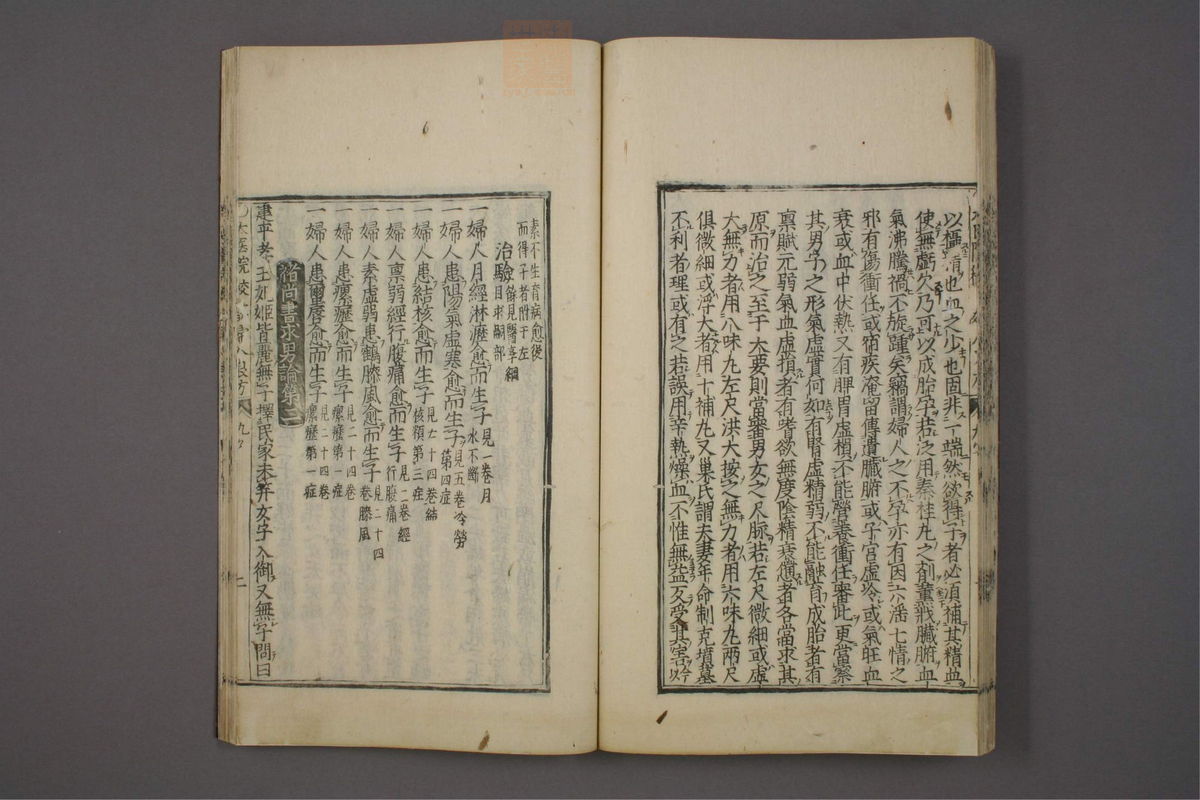 以攝精也血之少也固非一端然欲得子者必須補其精血
使無虧欠乃可以成胎孕若泛用秦桂丸之劑薰戕臟腑血
氣沸騰禍不旋踵矣竊謂婦人之不孕亦有因六淫七情之
邪有傷衝任或宿疾淹留傳遺臟腑或子宮虛冷或氣旺血
衰或血中伏熱又有脾胃虛損不能營養衝任審此更當察
其男子之形氣虛實何如有腎虛精弱不能融育成胎者有
禀賦元弱氣血虛損者有嗜欲無度陰精衰憊者各當求其
原而治之至于大要則當審男女之尺脉若左尺微細或虛
大無力者用八味丸左尺洪大按之無力者用六味丸兩尺
俱微細或浮大者用十補丸又巢氏謂夫妻年命制克墳墓
不利者理或有之若誤用辛熱燥血不惟無益反受其害
素不生育病愈後
而得子者附于左
治驗
餘見醫享綱
目求嗣部
一婦人月經淋瀝愈而生子見一卷月水不斷
一婦人患陽氣虛寒愈而生子見五卷冷勞第四症
一婦人患結核愈而生子見十四卷結核類第三症
一婦人禀弱經行腹痛愈而生子見二卷經行腹痛
一婦人素虛弱患鶴膝風愈而生子見二十四卷膝風
一婦人患瘰癧愈而生子見二十四卷瘰癧第一症
一婦人患繭唇愈而生子見二十四卷瘰癧第一症
褚尚書求男論第三
建平孝王妃姬皆麗無子擇民家未笄女子入御又無子問曰